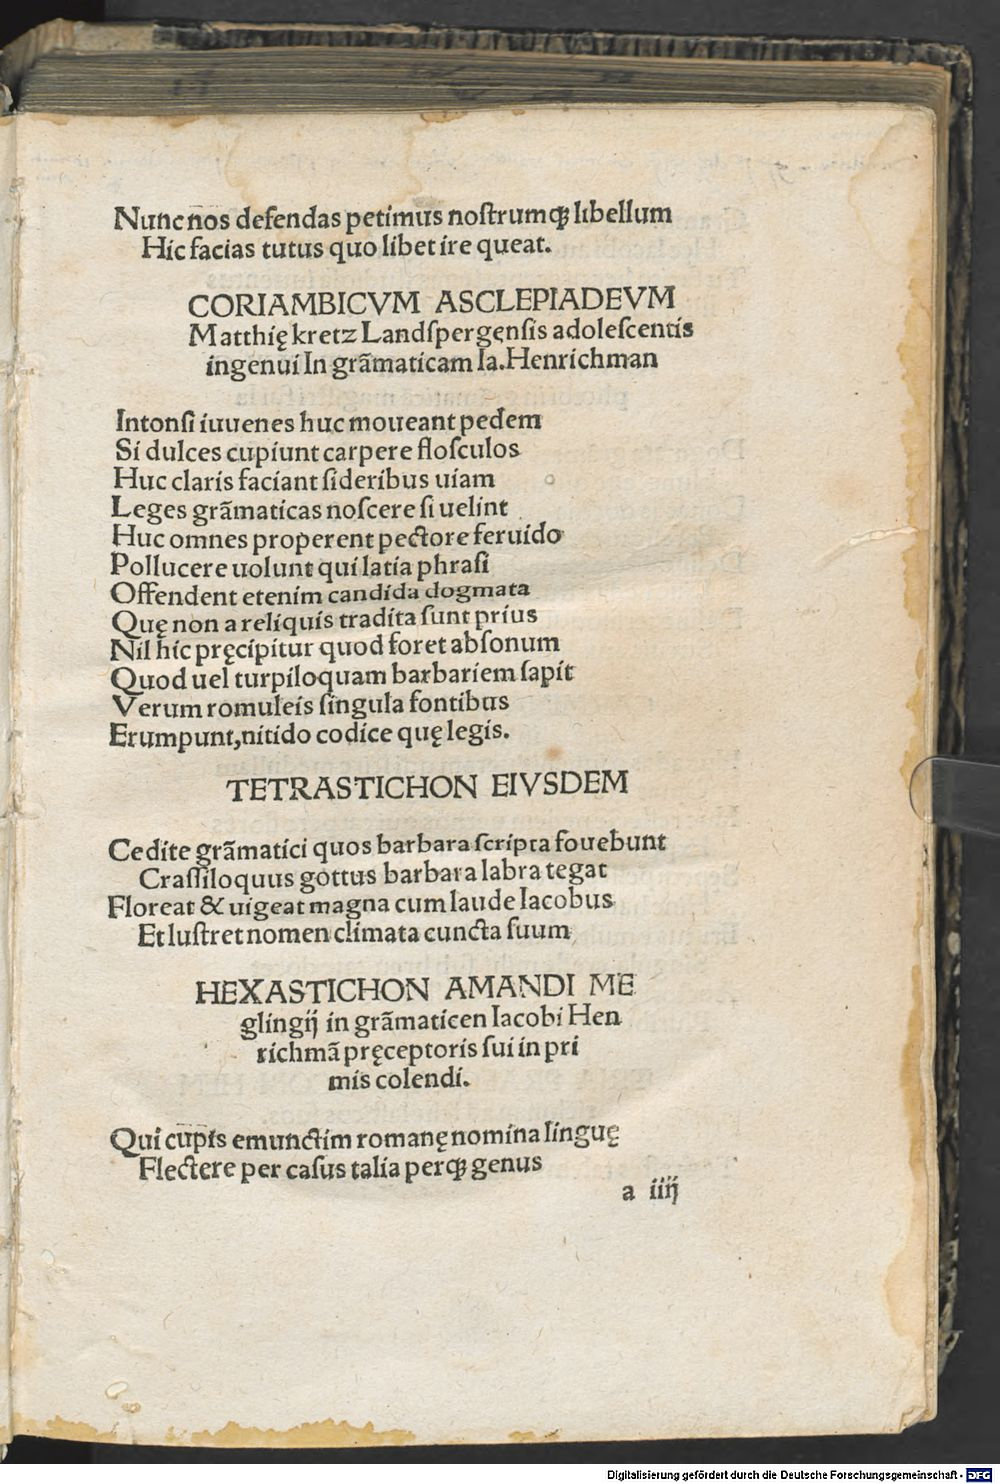 Nunc nos defendas petimus noſtrumqȝ libellum
Hic facias tutus quo libet ire queat.
CORIAMBICVM ASCLEPIADEVM
Matthię kretz Landſpergenſis adoleſcentis
ingenui In grãmaticam Ia. Henrichman
Intonſi iuuenes huc moueant pedem
Si dulces cupiunt carpere floſculos
Huc claris faciant ſideribus uiam
Leges grãmaticas noſcere ſi uelint
Huc omnes properent pectore feruido
Pollucere uolunt qui latia phraſi
Offendent etenim candida dogmata
Quę non a reliquis tradita ſunt prius
Nil hic pręcipitur quod foret abſonum
Quod uel turpiloquam barbariem ſapit
Verum romuleis ſingula fontibus
Erumpunt, nitido codice quę legis.
TETRASTICHON EIVSDEM
Cedite grãmatici quos barbara ſcripta fouebunt
Craſſiloquus gottus barbara labra tegat
Floreat & uigeat magna cum laude Iacobus
Et luſtret nomen climata cuncta ſuum
HEXASTICHON AMANDI ME
glingij in grãmaticen Iacobi Hen
richmã pręceptoris ſui in pri
mis colendi.
Qui cupis emunctim romanę nomina linguę
Flectere per caſus talia perqȝ genus
a iiij
Digitalisierung gefördert durch die Deutsche Forschungsgemeinschaft - DFG